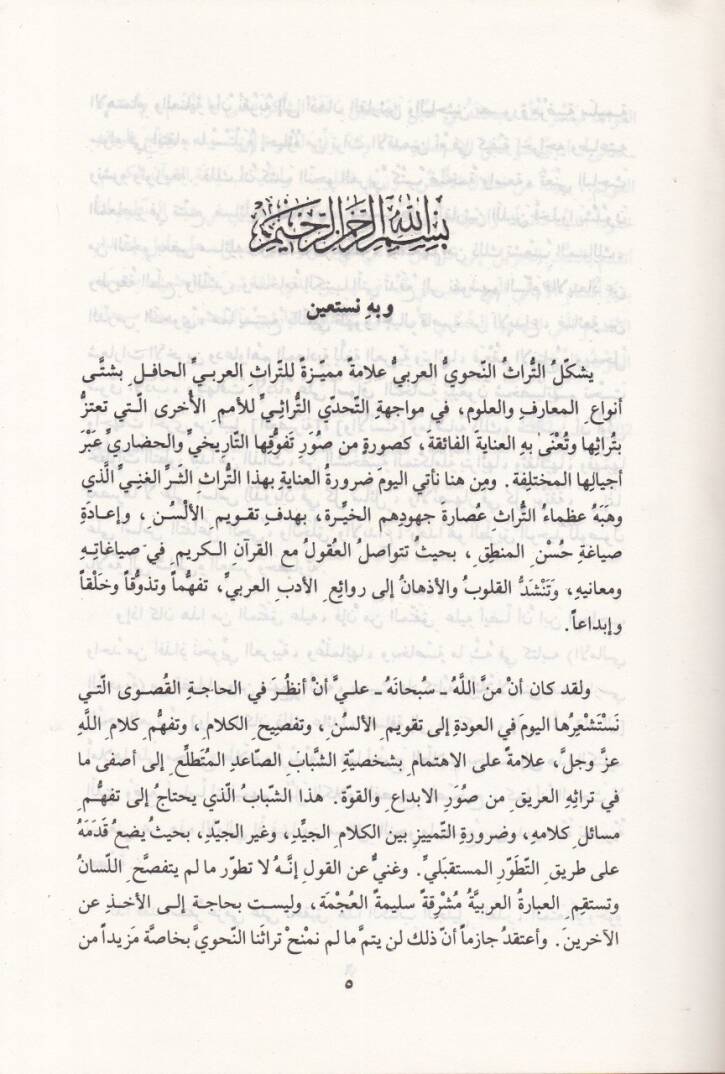 بسم الله الرحمن الرحيم
وبهِ نستعين
يشكّل التُّراثُ النّحويُّ العربيُّ علامةً مميّزةً للتراثِ العربيِّ الحافلِ بشتَّى
أنواعِ المعارفِ والعلومِ، في مواجهةِ التّحدّي التُّراثيِّ للأممِ الأُخرى الّتي تعتزُّ
بتُراثِها وتُعْنىٰ بهِ العناية الفائقة، كصورةٍ من صُوَرِ تفوُّقِها التّاريخيِّ والحضاريِّ عَبْرَ
أجيالِها المختلِفة. ومِن هنا تأتي اليومَ ضرورةُ العنايةِ بهذا التُّراثِ الثَّرِ الغنيِّ الَّذي
وهَبَهُ عظماءُ التُّراثِ عُصارةَ جهودِهم الخيِّرة، بهدفِ تقويمِ الألْسُنِ، وإعادَةِ
صياغةِ حُسْنِ المنطِقِ، بحيثُ تتواصلُ العُقولُ مع القرآنِ الكريمِ في صياغاتِهِ
ومعانيهِ، وَتَنْشَدُّ القلوبُ والأذهانُ إلى روائِعِ الأدبِ العربيِّ، تفهُّماً وتذوُّقاً وخَلْقاً
وإبداعاً.
ولقد كان أنْ منَّ اللَّهُ ـ سُبحانَهُ ـ عليَّ أنْ أنظُرَ في الحاجةِ القُصوى الّتي
نَسْتَشْعِرُها اليومَ في العودةِ إلى تقويمِ الألسُنِ، وتفصيحِ الكلامِ، وتفهُّمِ كلامِ اللَّهِ
عزَّ وجلَّ، علامةً على الاهتمامِ بشخصيّةِ الشَّبابِ الصّاعدِ المُتَطلِّعِ إلى أصفى ما
في تراثِهِ العريقِ من صُوَرِ الابداعِ والقوّة. هذا الشّبابُ الّذي يحتاجُ إلى تفهُّمِ
مسائلِ كلامهِ، وضرورةِ التّمييزِ بين الكلامِ الجيِّدِ، وغير الجيّدِ، بحيثُ يضعُ قَدَمَهُ
على طريقِ التّطَوّرِ المستقبَليِّ. وغنيٌّ عن القولِ إنَّهُ لا تطوّر ما لم يتفصَّح اللّسانُ
وتستقِمِ العبارةُ العربيَّةُ مُشْرِقةً سليمةَ العُجْمَة، وليست بحاجة إلى الأخذِ عن
الآخرينَ. وأعتقدُ جازماً أنّ ذلك لن يتمَّ ما لم نمنْحْ تراثَنا النّحويَّ بخاصَّة مَزيداً من
٥